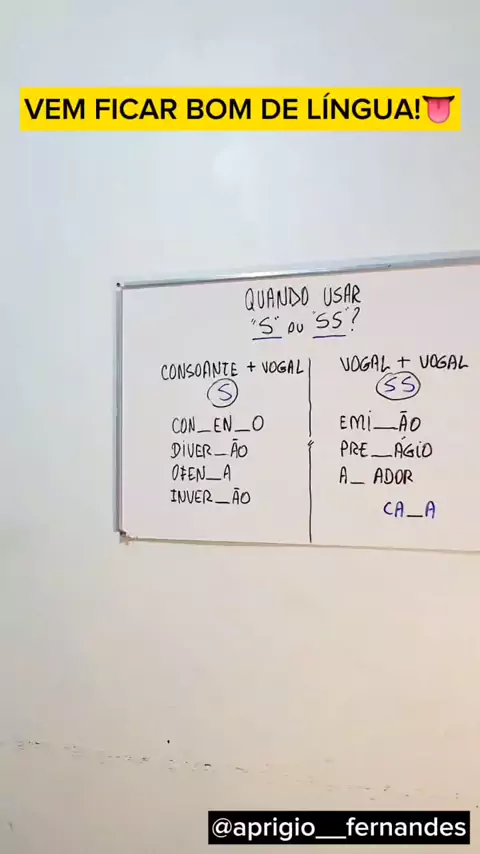 VEM FICAR BOM DE LÍNGUA!👅
QUANDO USAR
"S" OU "SS"?
CONSOANTE + VOGAL
S
CON_EN_O
DIVER_ÃO
OFEN_A
INVER_ÃO
VOGAL + VOGAL
SS
EMI__ÃO
PRE__ÁGIO
A_ ADOR
CA_A
@aprigio__fernandes